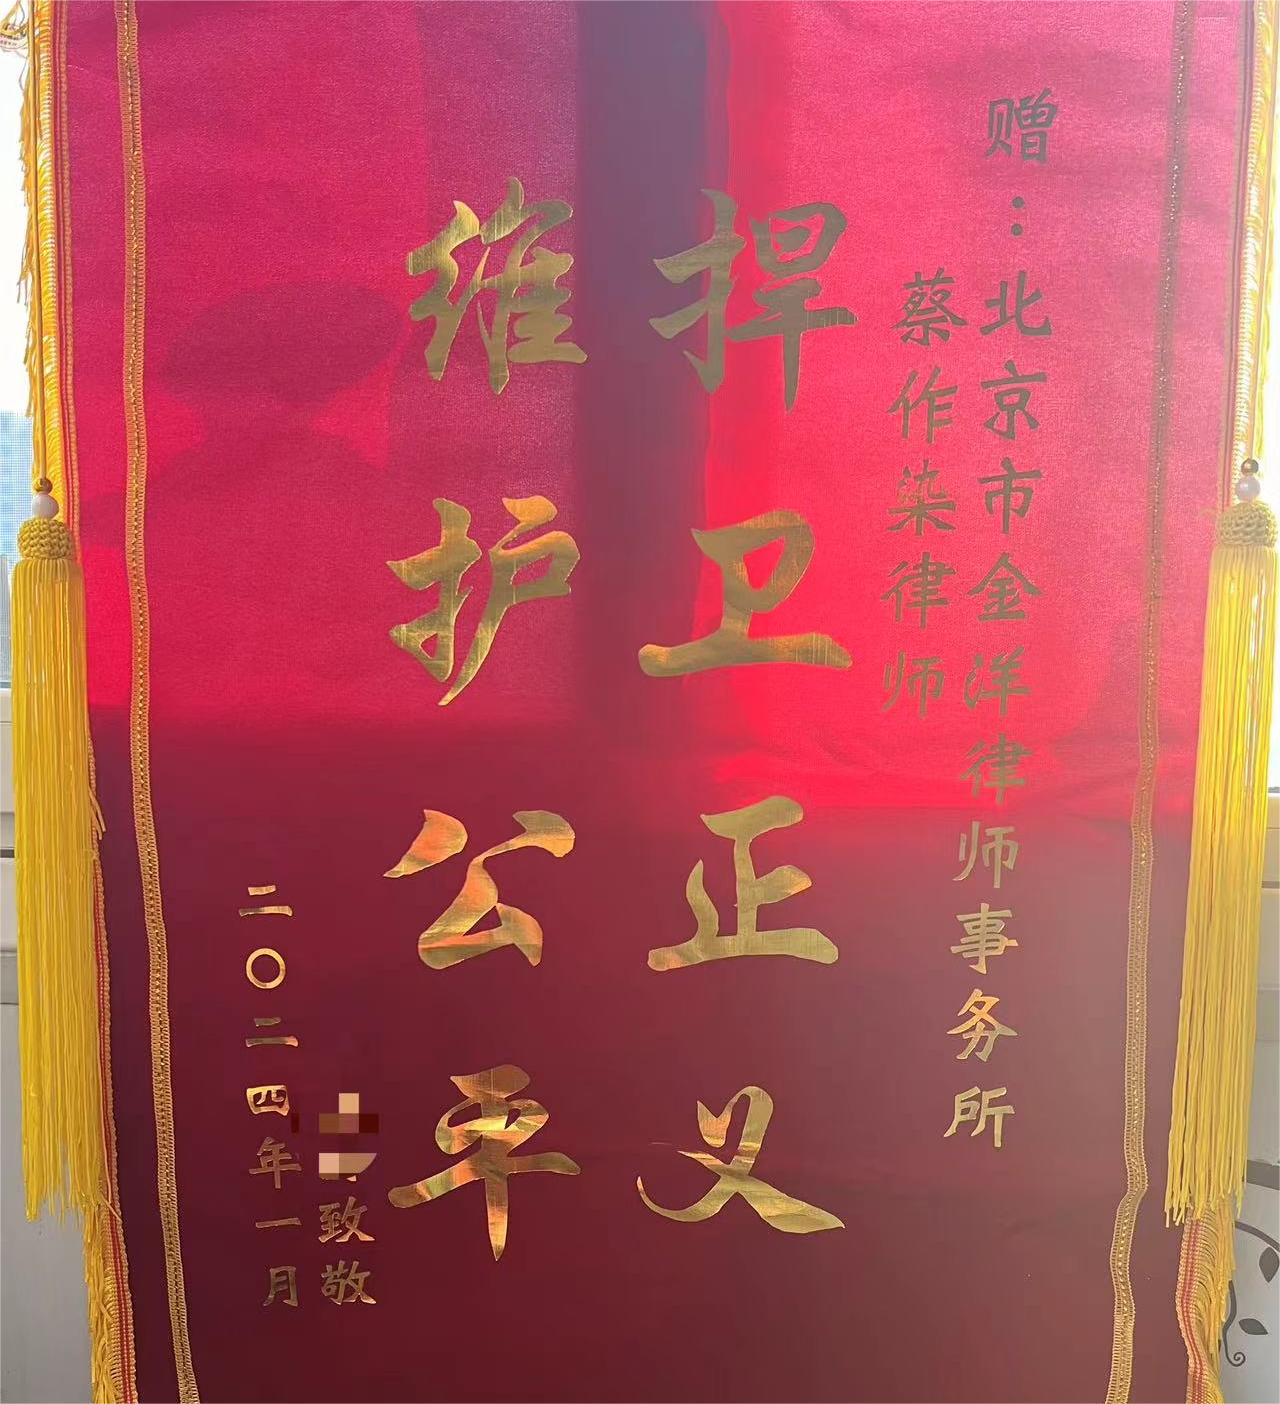 赠：北京市金洋律师事务所
蔡作染律师
捍卫正义
维护公平
致敬
二〇二四年一月